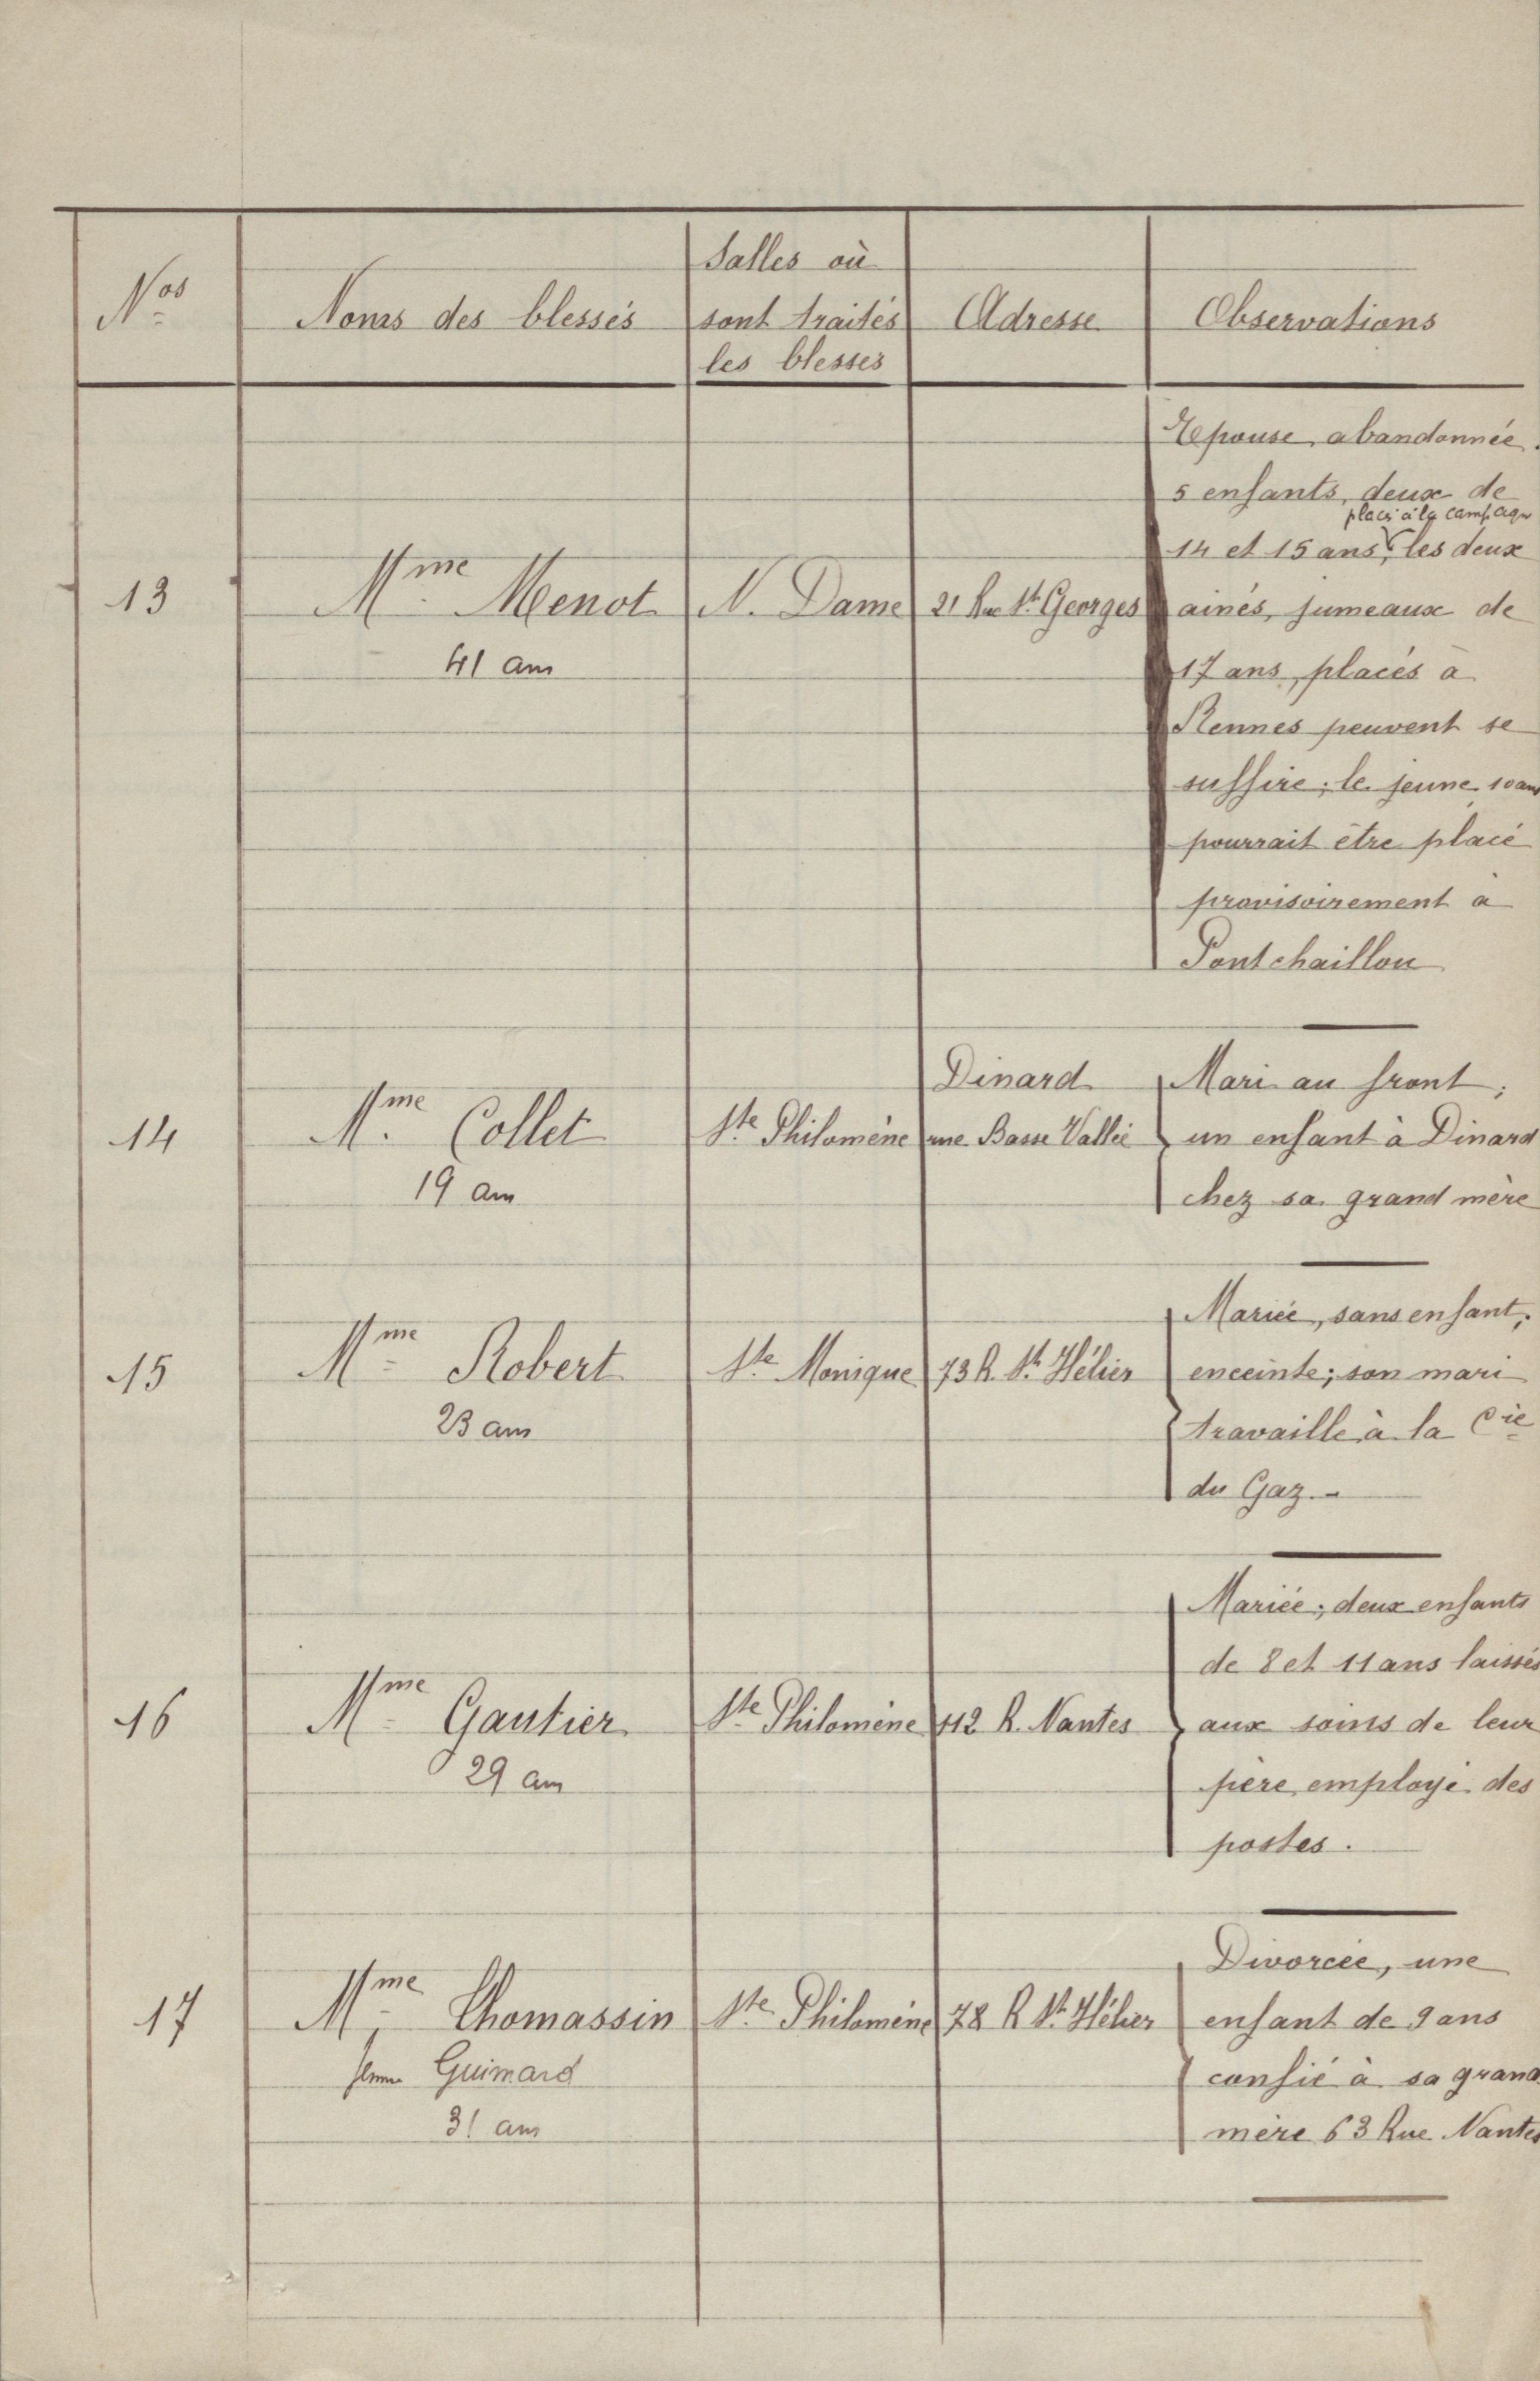 Nos
Noms des blessés
Salles où
sont traités
les blessés
Adresse
Observations
13
Mme Menot
41 ans
N. Dame
21 Rue St Georges
Epouse abandonnée.
5 enfants, deux de
placés à la campagne
14 et 15 ans, les deux
ainés, jumeaux de
17 ans, placés à
Rennes peuvent se
suffire; le jeune 10 ans
pourrait être placé
provisoirement à
Pontchaillou
14
Mme Collet
19 ans
Ste Philomène
Dinard
rue Basse Vallée
Mari au front;
un enfant à Dinard
chez sa grand mère
15
Mme Robert
23 ans
Ste Monique
73 R. St Hélier
Mariée, sans enfant,
enceinte; son mari
travaille à la Cie
du Gaz.-
16
Mme Gautier
29 ans
Ste Philomène
112 R. Nantes
Mariée; deux enfants
de 8 et 11 ans laissés
aux soins de leur
père employé des
postes.
17
Mme Thomassin
femme Guimard
31 ans
Ste Philomène
78 R St Hélier
Divorcée, une
enfant de 9 ans
confié à sa grand
mère 63 Rue Nantes